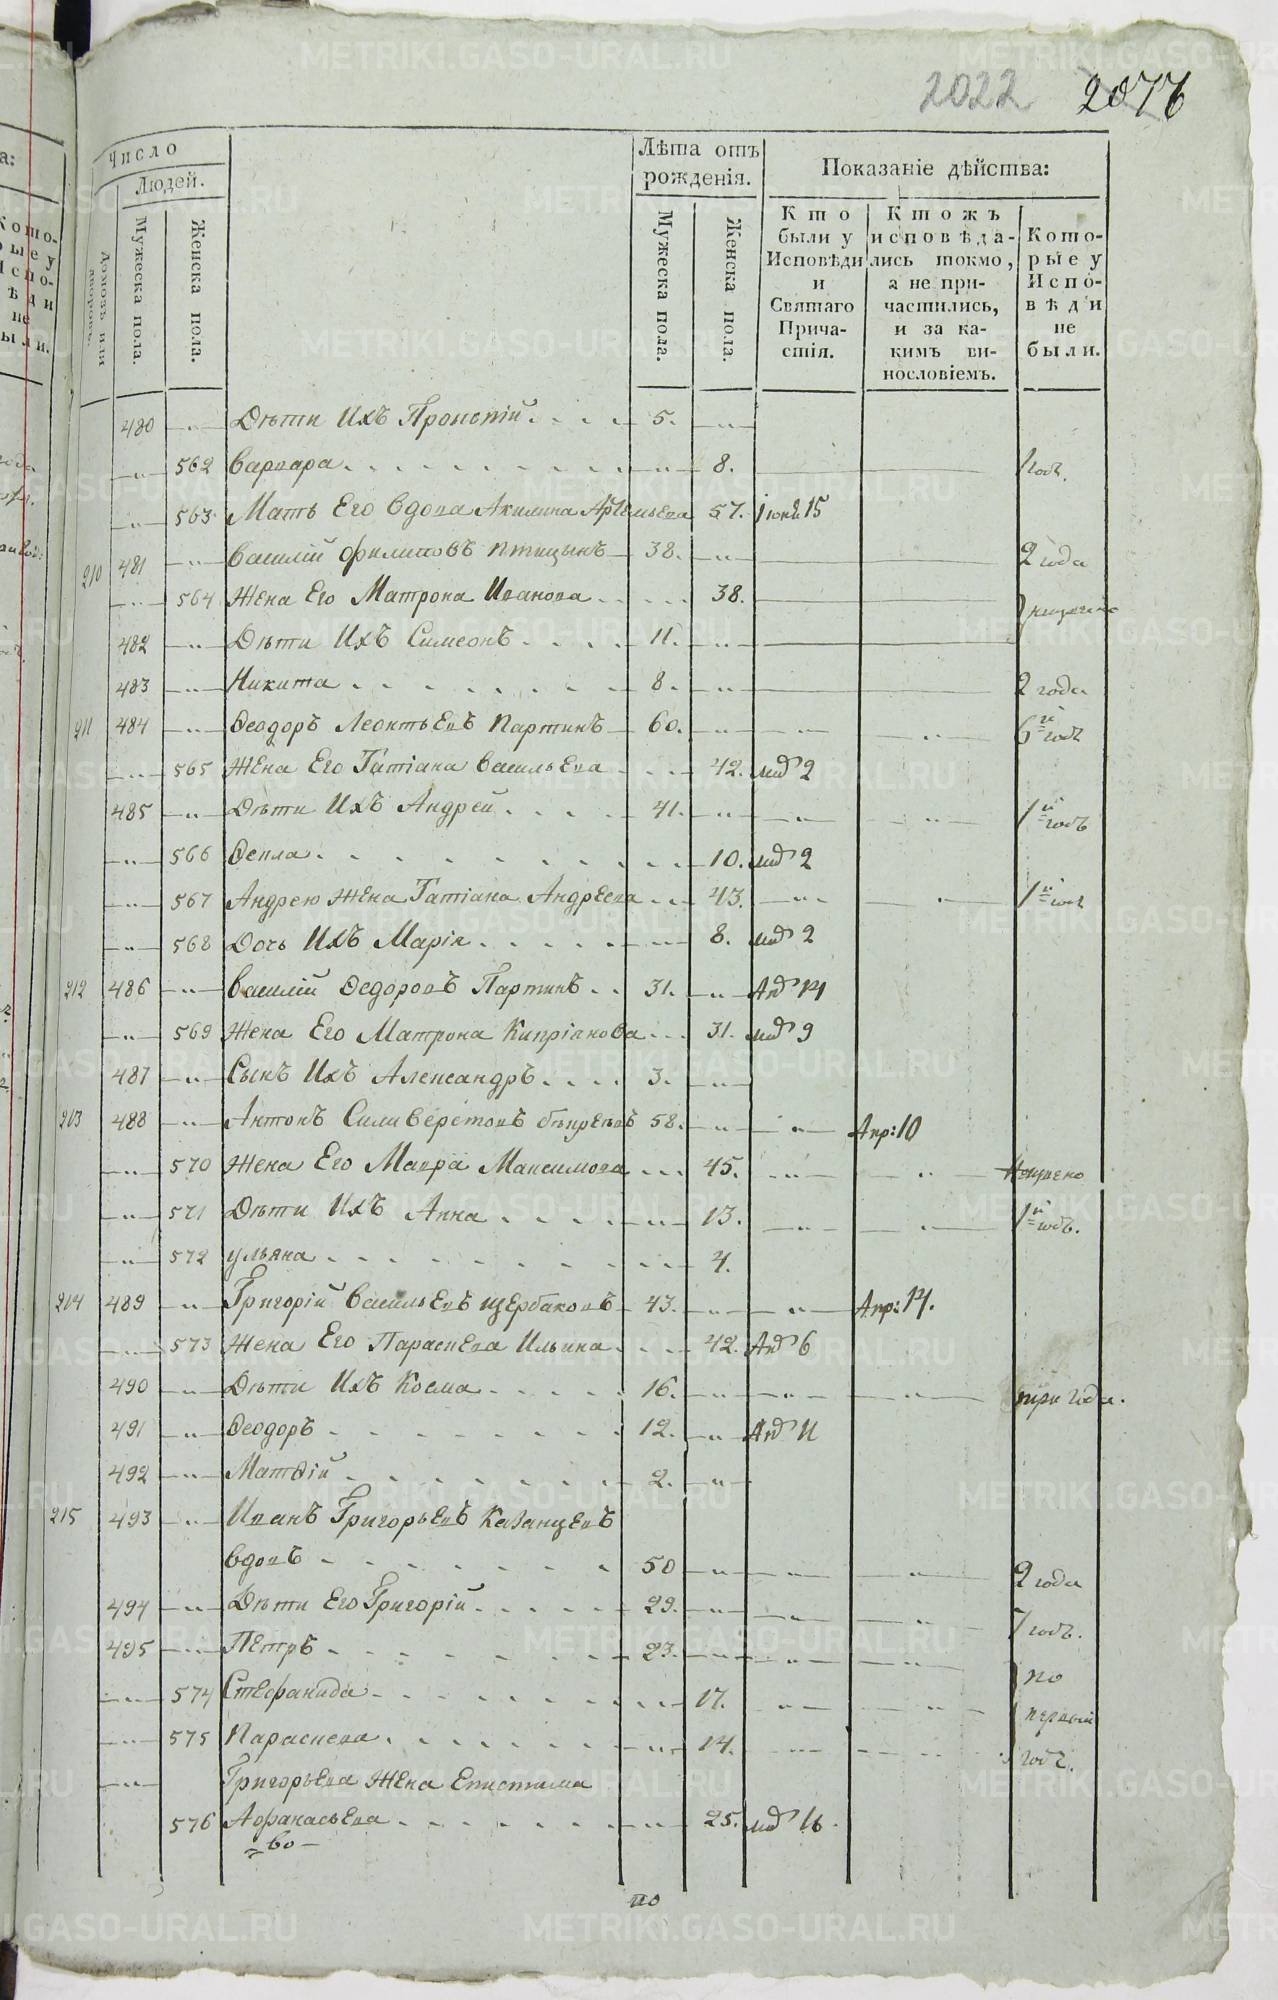 2022 2076
Число
Людей.
Домовъ или дворовъ.
Мужеска пола.
Женска пола.
Лѣта отъ рожденія.
Мужеска пола.
Женска пола.
Показаніе дѣйства:
Кто были у Исповѣди и Святаго Причастія.
Ктожъ исповѣдались токмо, а не причастились, и за какимъ винословіемъ.
Которые у Исповѣди не были.
480 Дѣти Ихъ Прокопій 5.
562 Варвара 8. 1 годъ.
563 Мать Его Вдова Акилина Артемьева 57. Іюня 15
210 481 Василій Филиповъ Птицынъ 38. 2 года
564 Жена Его Матрона Иванова 38.
482 Дѣти Ихъ Симеонъ 11.
483 Никита 8. 2 года
211 484 Ѳеодоръ Леонтьевъ Партинъ 60. 6й годъ
565 Жена Его Татіана Васильева 42. 2
485 Дѣти Ихъ Андрей 41. 1й годъ
566 Ѳекла 10. 2
567 Андрею Жена Татіана Андреева 43. 1й годъ
568 Дочь Ихъ Марія 8. 2
212 486 Василій Ѳедоровъ Партинъ 31. 14
569 Жена Его Матрона Кипріянова 31. 9
487 Сынъ Ихъ Александръ 3.
213 488 Антонъ Силиверстовъ 58. Апр: 10
570 Жена Его Мавра Максимова 45.
571 Дѣти Ихъ Анна 13. 1й годъ.
572 Ульяна 4.
214 489 Григорій Васильевъ Щербаковъ 43. Апр: 14.
573 Жена Его Параскева Ильина 42. 6
490 Дѣти Ихъ Косма 16. три года.
491 Ѳеодоръ 12. 11
492 Матѳій 2.
215 493 Иванъ Григорьевъ Казанцевъ
вдовъ 50 2 года
494 Дѣти Его Григорій 29. 7 годъ.
495 Петръ 23. по
574 Стефанида 17. первый
575 Параскева 14. годъ.
Григорьева Жена Епистима
576 Афанасьева 25. 16
во
по
METRIKI.GASO-URAL.RU